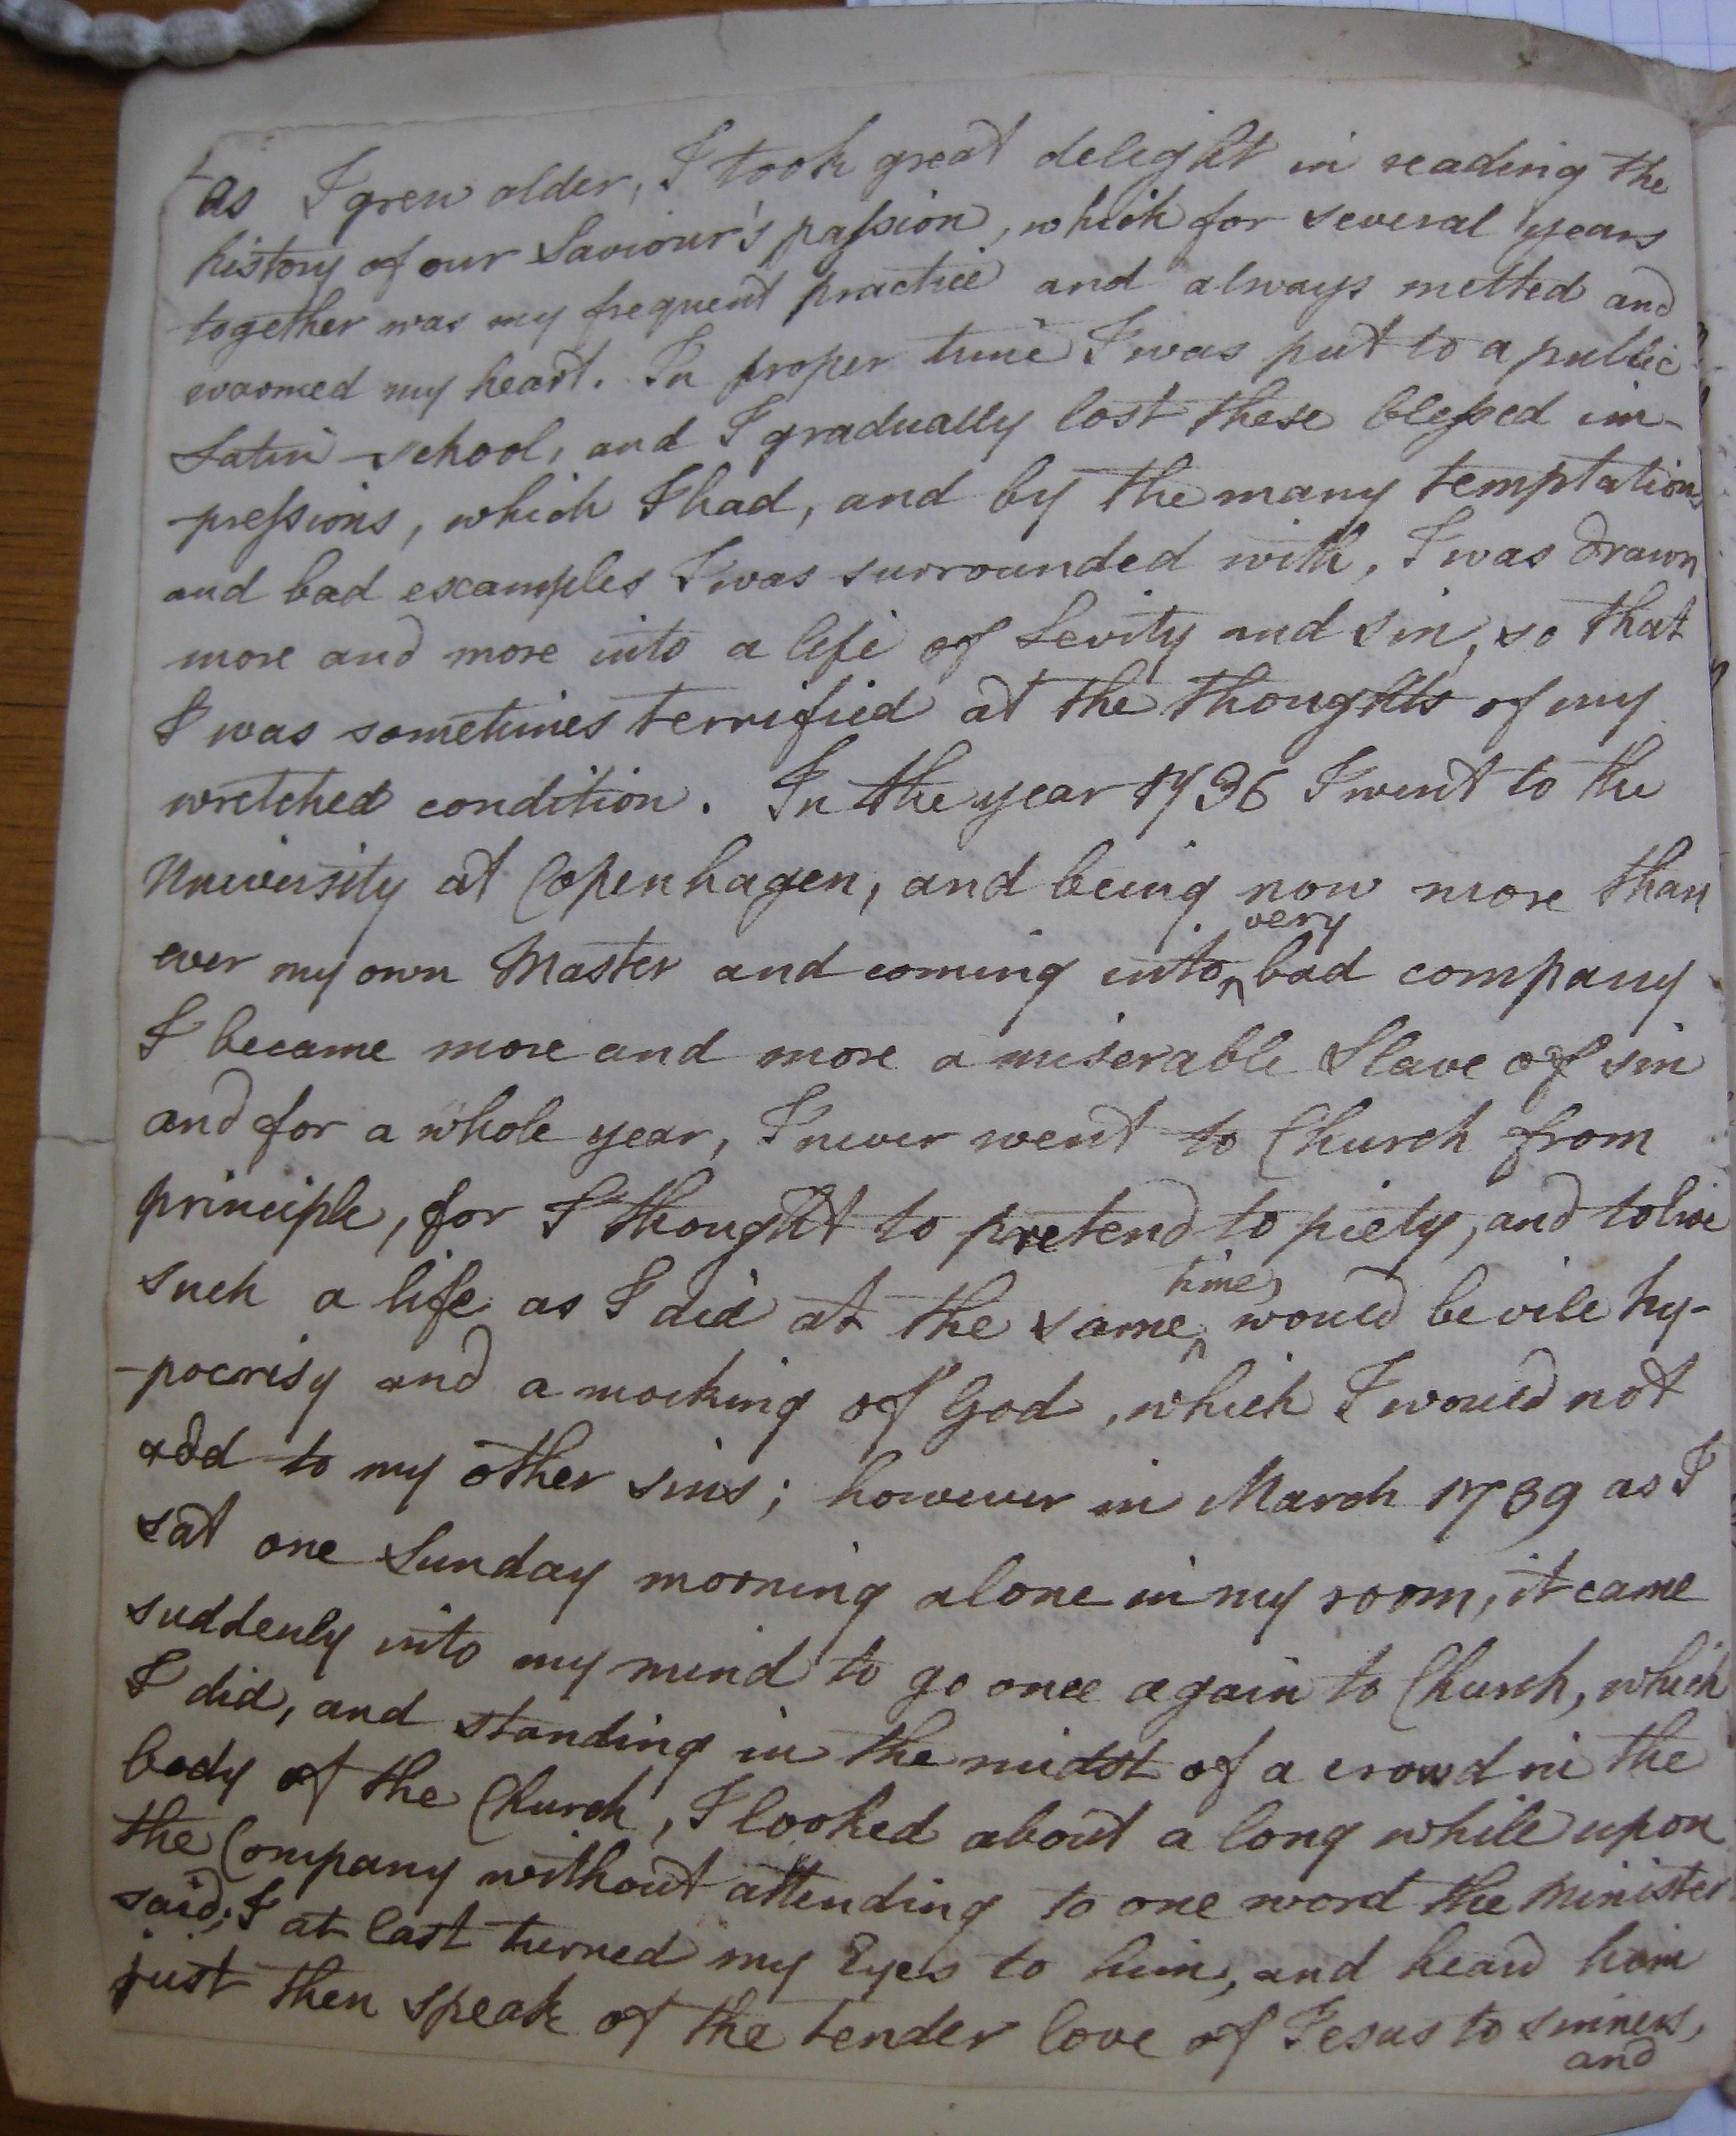 as I grew older, I took great delight in reading the
history of our Saviour's passion, which for several years
together was my frequent practice and always melted and
warmed my heart. In proper time I was put to a public
Latin-school, and I gradually lost these blessed im-
-pressions, which I had, and by the many temptations
and bad examples I was surrounded with, I was drawn
more and more into a life of Levity and sin, so that
I was sometimes terrified at the thoughts of my
wretched condition. In the year 1736 I went to the
University at Copenhagen, and being now more than
very
ever my own Master and coming into ^ bad company
I became more and more a miserable Slave of sin
and for a whole year, I never went to Church from
principle, for I thought to pretend to piety, and to live
time
such a life as I did at the same ^ would be vile hy-
-pocrisy and a mocking of God, which I would not
add to my other sins; however in March 1739 as I
sat one Sunday morning alone in my room, it came
suddenly into my mind to go once again to Church, which
I did, and standing in the midst of a crowd in the
body of the Church, I looked about a long while upon
the Company without attending to one word the Minister
said; I at last turned my Eyes to him, and heard him
just then speak of the tender love of Jesus to sinners,
and